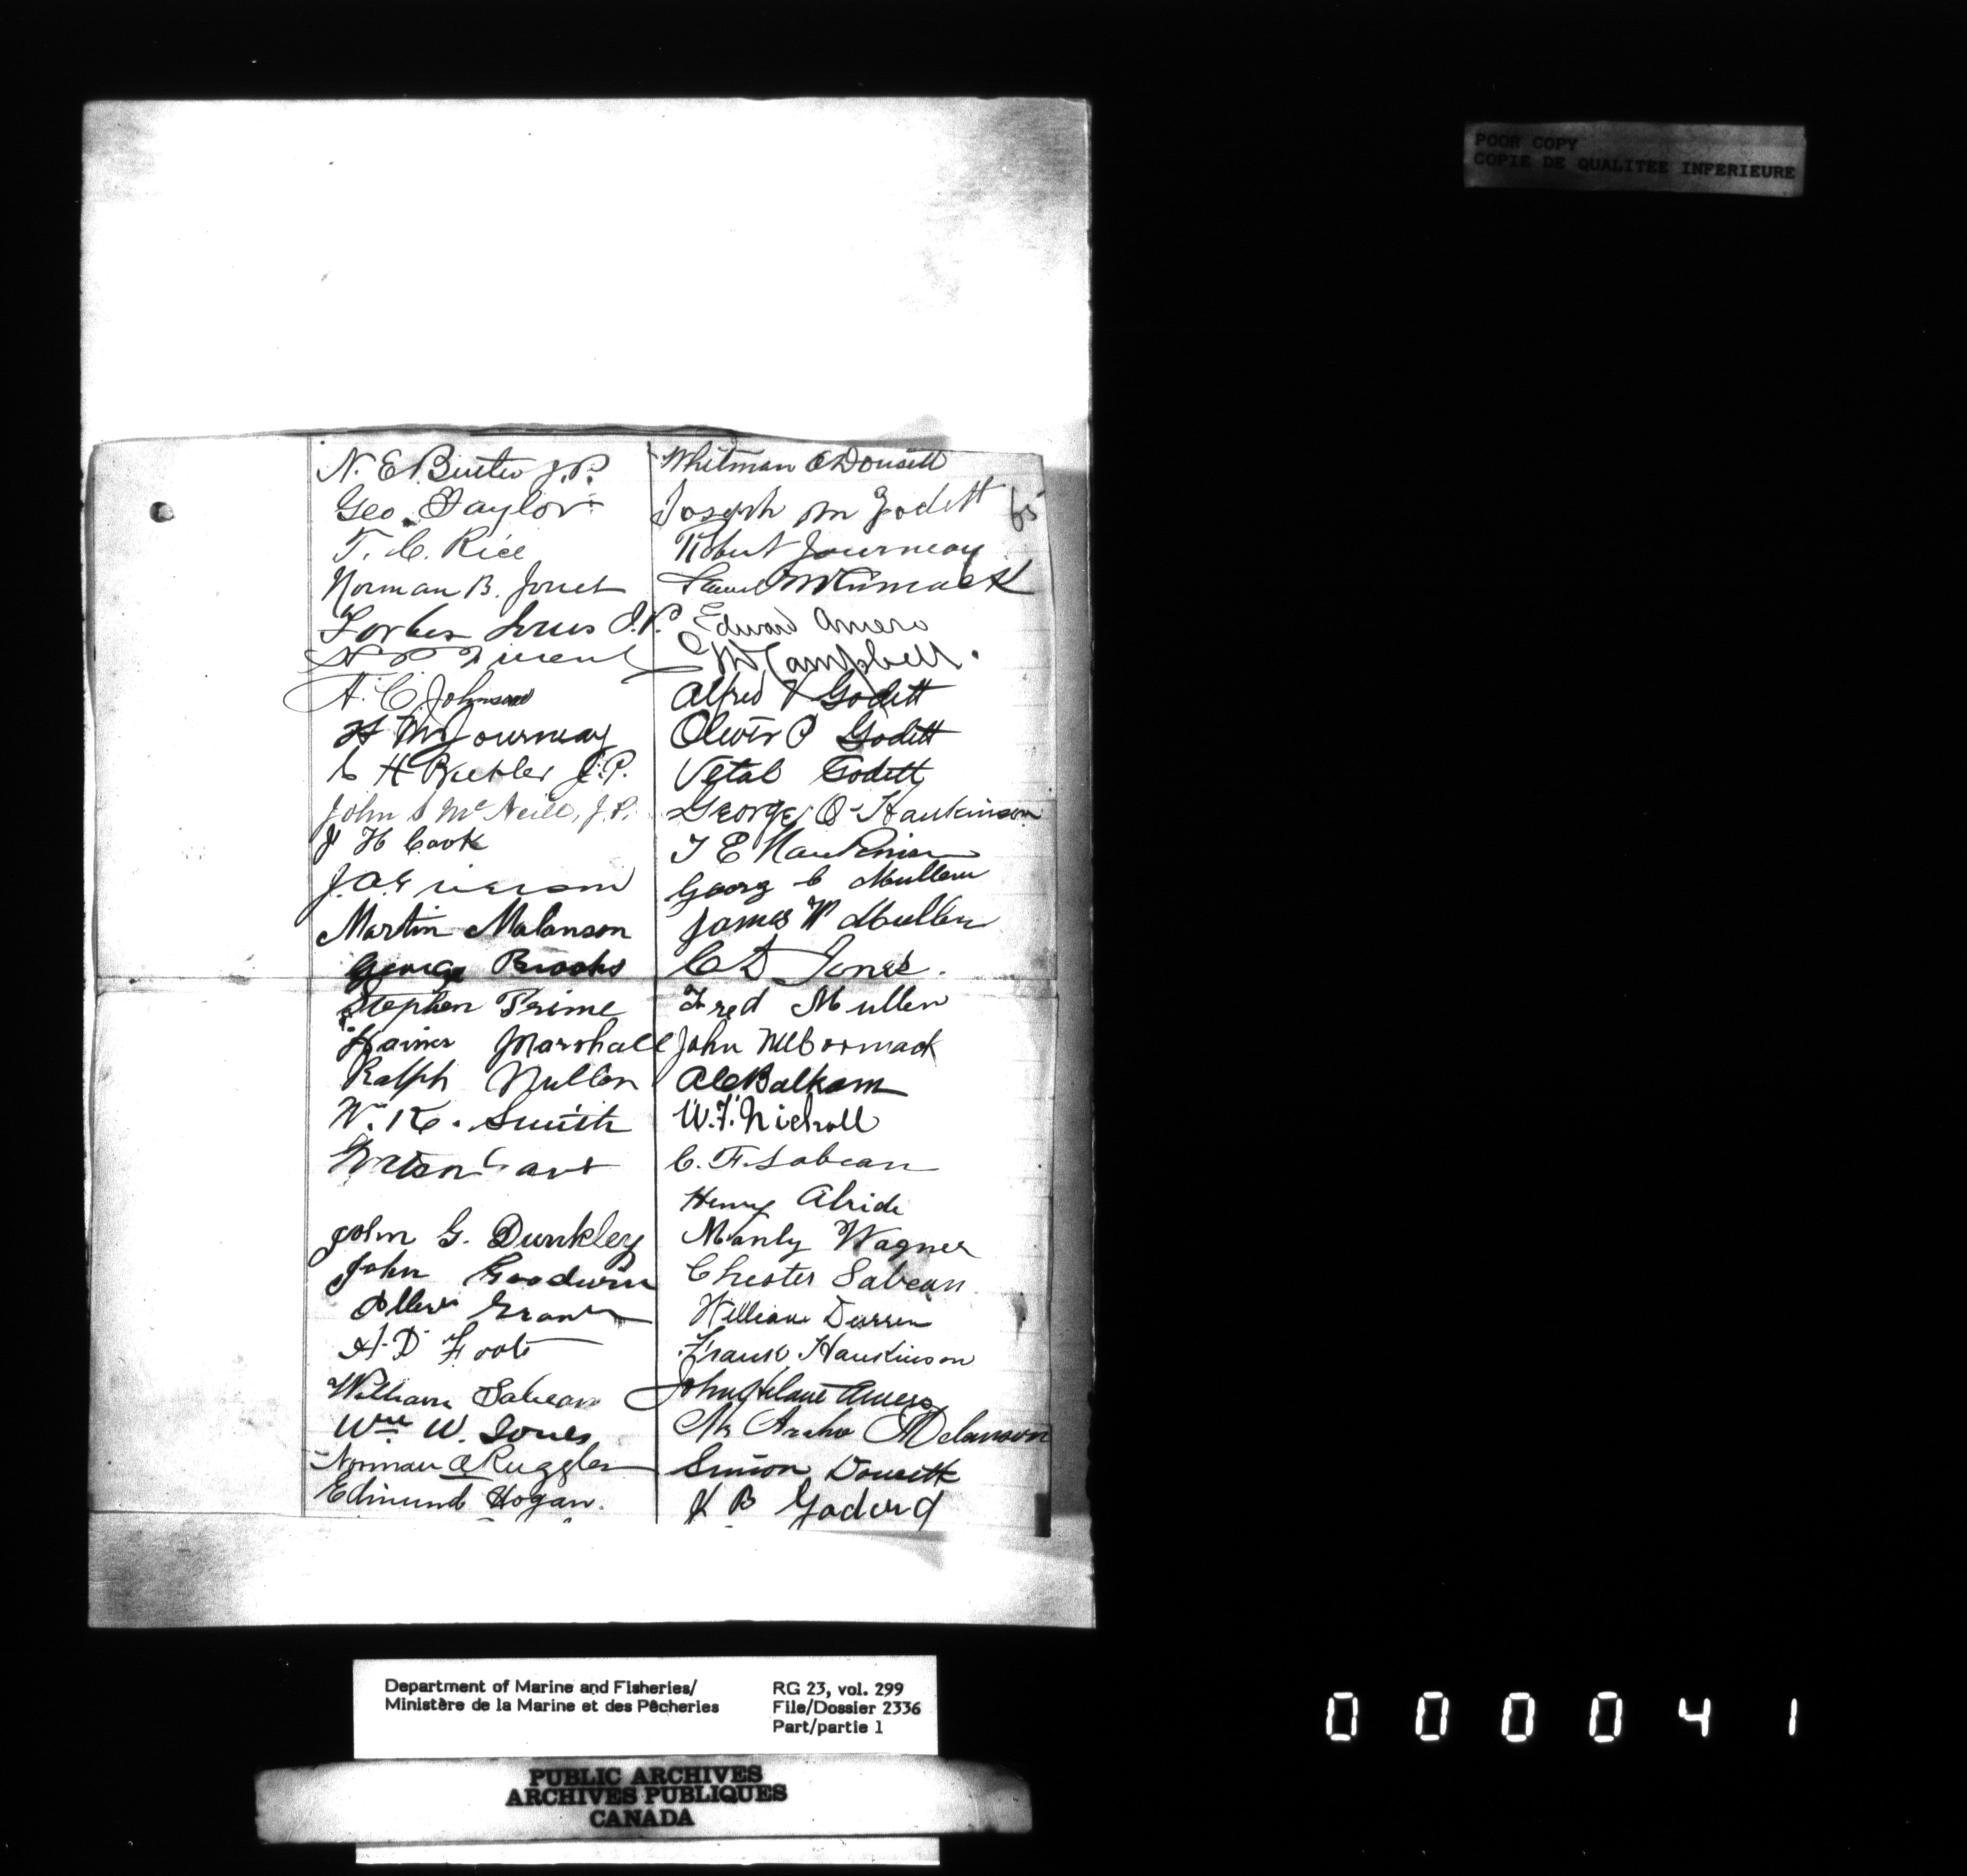 POOR COPY
COPIE DE QUALITEE INFERIEURE
65
N. E. Butler J.P.
Geo. Taylor
T. C. Rice
Norman B. Jones
Forbes Jones J.P.
A. C. Johnson
H M Journeay
C H Buehler J.P.
John S McNeill, J.P.
J H Cook
Martin Malanson
George Brooks
Stephen Prime
Haines Marshall
Ralph Mullen
W. K. Smith
John G. Dunkley
John Goodwin
Allen Grant
H. D Foot
William Sabean
Wm W. Jones
Norman A Ruggles
Edmund Hogan.
Whitman Doucett
Joseph M Godett
Robert Journeay
Edward Amero
McCampbell.
Alfred V Godett
Oliver P Godett
Vetal Godett
George O Hankinson
T E Hankinson
Georg C Mullen
James W Mullen
C D Jones.
Fred Mullen
John McCormack
A C Balkam
W. F. Nicholl
C. F. Sabean
Henry Alride
Manly Wagner
Chester Sabean
William Durren
Frank Hankinson
John Amero
Melanson
Simon Doucett
J B Goderd
Department of Marine and Fisheries/
Ministère de la Marine et des Pêcheries
RG 23, vol. 299
File/Dossier 2336
Part/partie 1
PUBLIC ARCHIVES
ARCHIVES PUBLIQUES
CANADA
000041